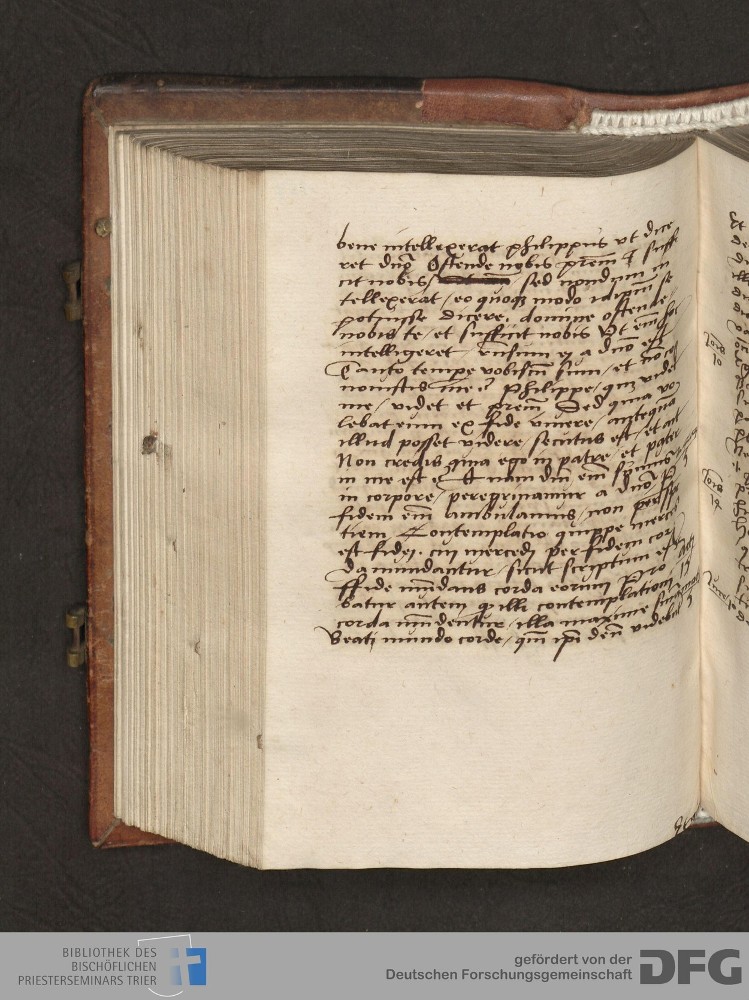 bene intellexerat philippus ut dice
ret dn̄e Ostende nobis prēm & suffi
cit nobis / sed nondum in
tellexerat / eo quoqz modo idipm̄ se
potuisse dicere. domine ostende
nobis te / et sufficit nobis Ut em̄ hoc
intelligeret / rn̄sum ei a dn̄o est
Tanto tempe vobiscū sum / et nō cog
nouistis me? Philippe / qui videt
me / videt et prēm Sed quia vo
lebat eum ex fide viuere / antequā
illud posset videre / secutus est / et ait
Non credis quia ego in patre / et pater
in me est? Et nam diu em̄ sumus
in corpore / peregrinamur a dn̄o P
fidem em̄ ambulamus / non per spe
tiem Contemplatio quippe merces
est fidei. cui mercedi per fidem cor
da mundantur / sicut scriptum est
Fide mundans corda eorum Pro
batur autem q̄ illi contemplationi
corda mūdentur / illa maxime sententia
Beati mundo corde / qm̄ ipi deū videbūt
Ioīs
10
Ioīs
14
BIBLIOTHEK DES
BISCHÖFLICHEN
PRIESTERSEMINARS TRIER
gefördert von der
Deutschen Forschungsgemeinschaft
DFG